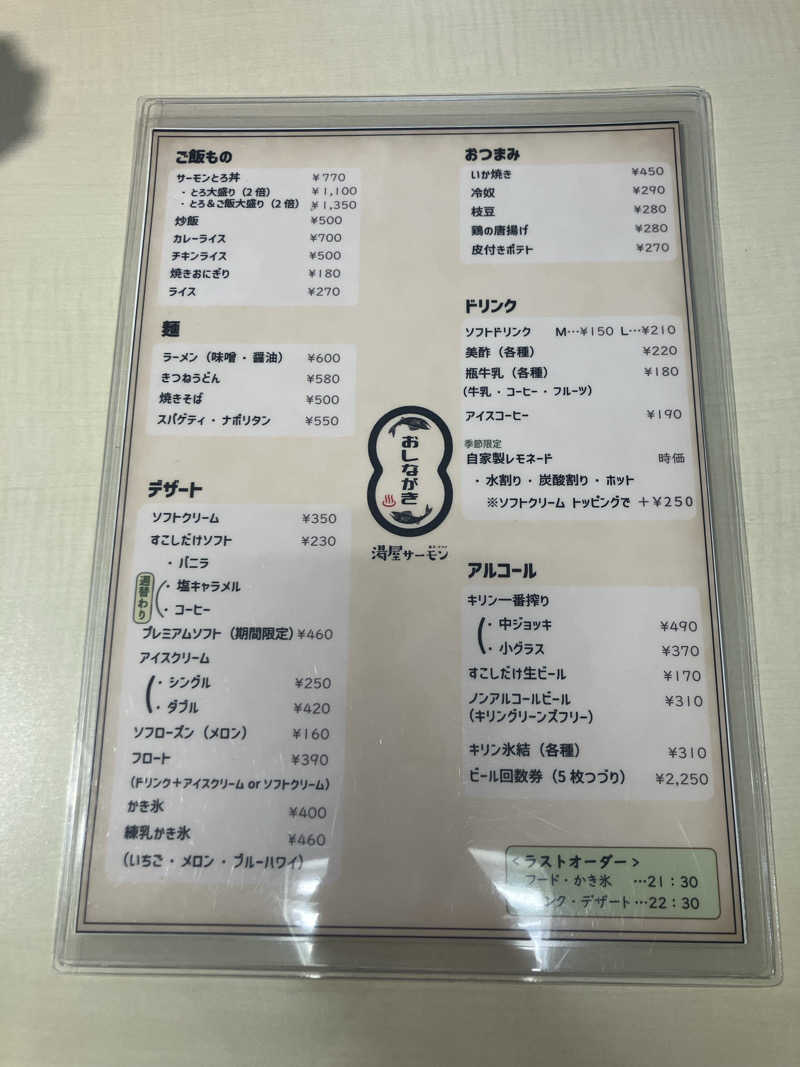 ご飯もの
サーモンとろ丼 ¥770
・とろ大盛り（2倍） ¥1,100
・とろ&ご飯大盛り（2倍） ¥1,350
炒飯 ¥500
カレーライス ¥700
チキンライス ¥500
焼きおにぎり ¥180
ライス ¥270
麺
ラーメン（味噌・醤油） ¥600
きつねうどん ¥580
焼きそば ¥500
スパゲティ・ナポリタン ¥550
デザート
ソフトクリーム ¥350
すこしだけソフト ¥230
・バニラ
週替わり
・塩キャラメル
・コーヒー
プレミアムソフト（期間限定） ¥460
アイスクリーム
・シングル ¥250
・ダブル ¥420
ソフローズン（メロン） ¥160
フロート ¥390
（ドリンク＋アイスクリーム or ソフトクリーム）
かき氷 ¥400
練乳かき氷 ¥460
（いちご・メロン・ブルーハワイ）
おしながき
湯屋サーモン
おつまみ
いか焼き ¥450
冷奴 ¥290
枝豆 ¥280
鶏の唐揚げ ¥280
皮付きポテト ¥270
ドリンク
ソフトドリンク M…¥150 L…¥210
美酢（各種） ¥220
瓶牛乳（各種） ¥180
（牛乳・コーヒー・フルーツ）
アイスコーヒー ¥190
季節限定
自家製レモネード 時価
・水割り・炭酸割り・ホット
※ソフトクリーム トッピングで ＋¥250
アルコール
キリン一番搾り
・中ジョッキ ¥490
・小グラス ¥370
すこしだけ生ビール ¥170
ノンアルコールビール ¥310
（キリングリーンズフリー）
キリン氷結（各種） ¥310
ビール回数券（5枚つづり） ¥2,250
＜ラストオーダー＞
フード・かき氷 …21：30
ンク・デザート…22：30